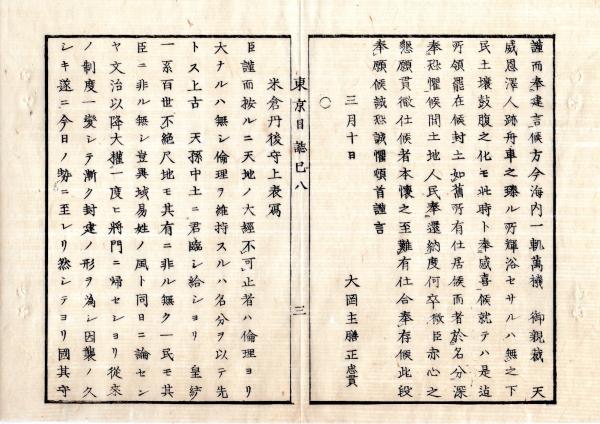 謹而奉建言候方今海内一軌萬機　御親裁　天
威恩澤人跡舟車之臻ル所輝浴セサルハ無之下
民土壌鼓腹之化モ此時ト奉感喜候就テハ是迠
所領罷在候封土如舊所有仕居候而者於名分深
奉恐懼候間土地人民奉還納度何卒微臣亦心之
懇願貫徹仕候者本懷之至難有仕合奉存候此段
奉願候誠恐誠懼頓首謹言
三月十日
大岡主膳正忠貫
○
東京日誌巳八　三
米倉丹後守上表寫
臣謹而按ルニ天地ノ大經不可止者ハ倫理ヨリ
大ナルハ無シ倫理ヲ維持スルハ名分ヲ以テ先
トス上古　天孫中土ニ君臨シ給ショリ　皇統
一系百世不絶尺地モ其有ニ非ル無ク一民モ其
臣ニ非ル無シ豈異域易姓ノ風ト同日ニ論セン
ヤ文治以降大權一度ヒ將門ニ歸セショリ從來
ノ制度一變シテ漸ク封建ノ形ヲ為シ因襲ノ久
シキ遂ニ今日ノ勢ニ至レリ然シテヨリ國其守